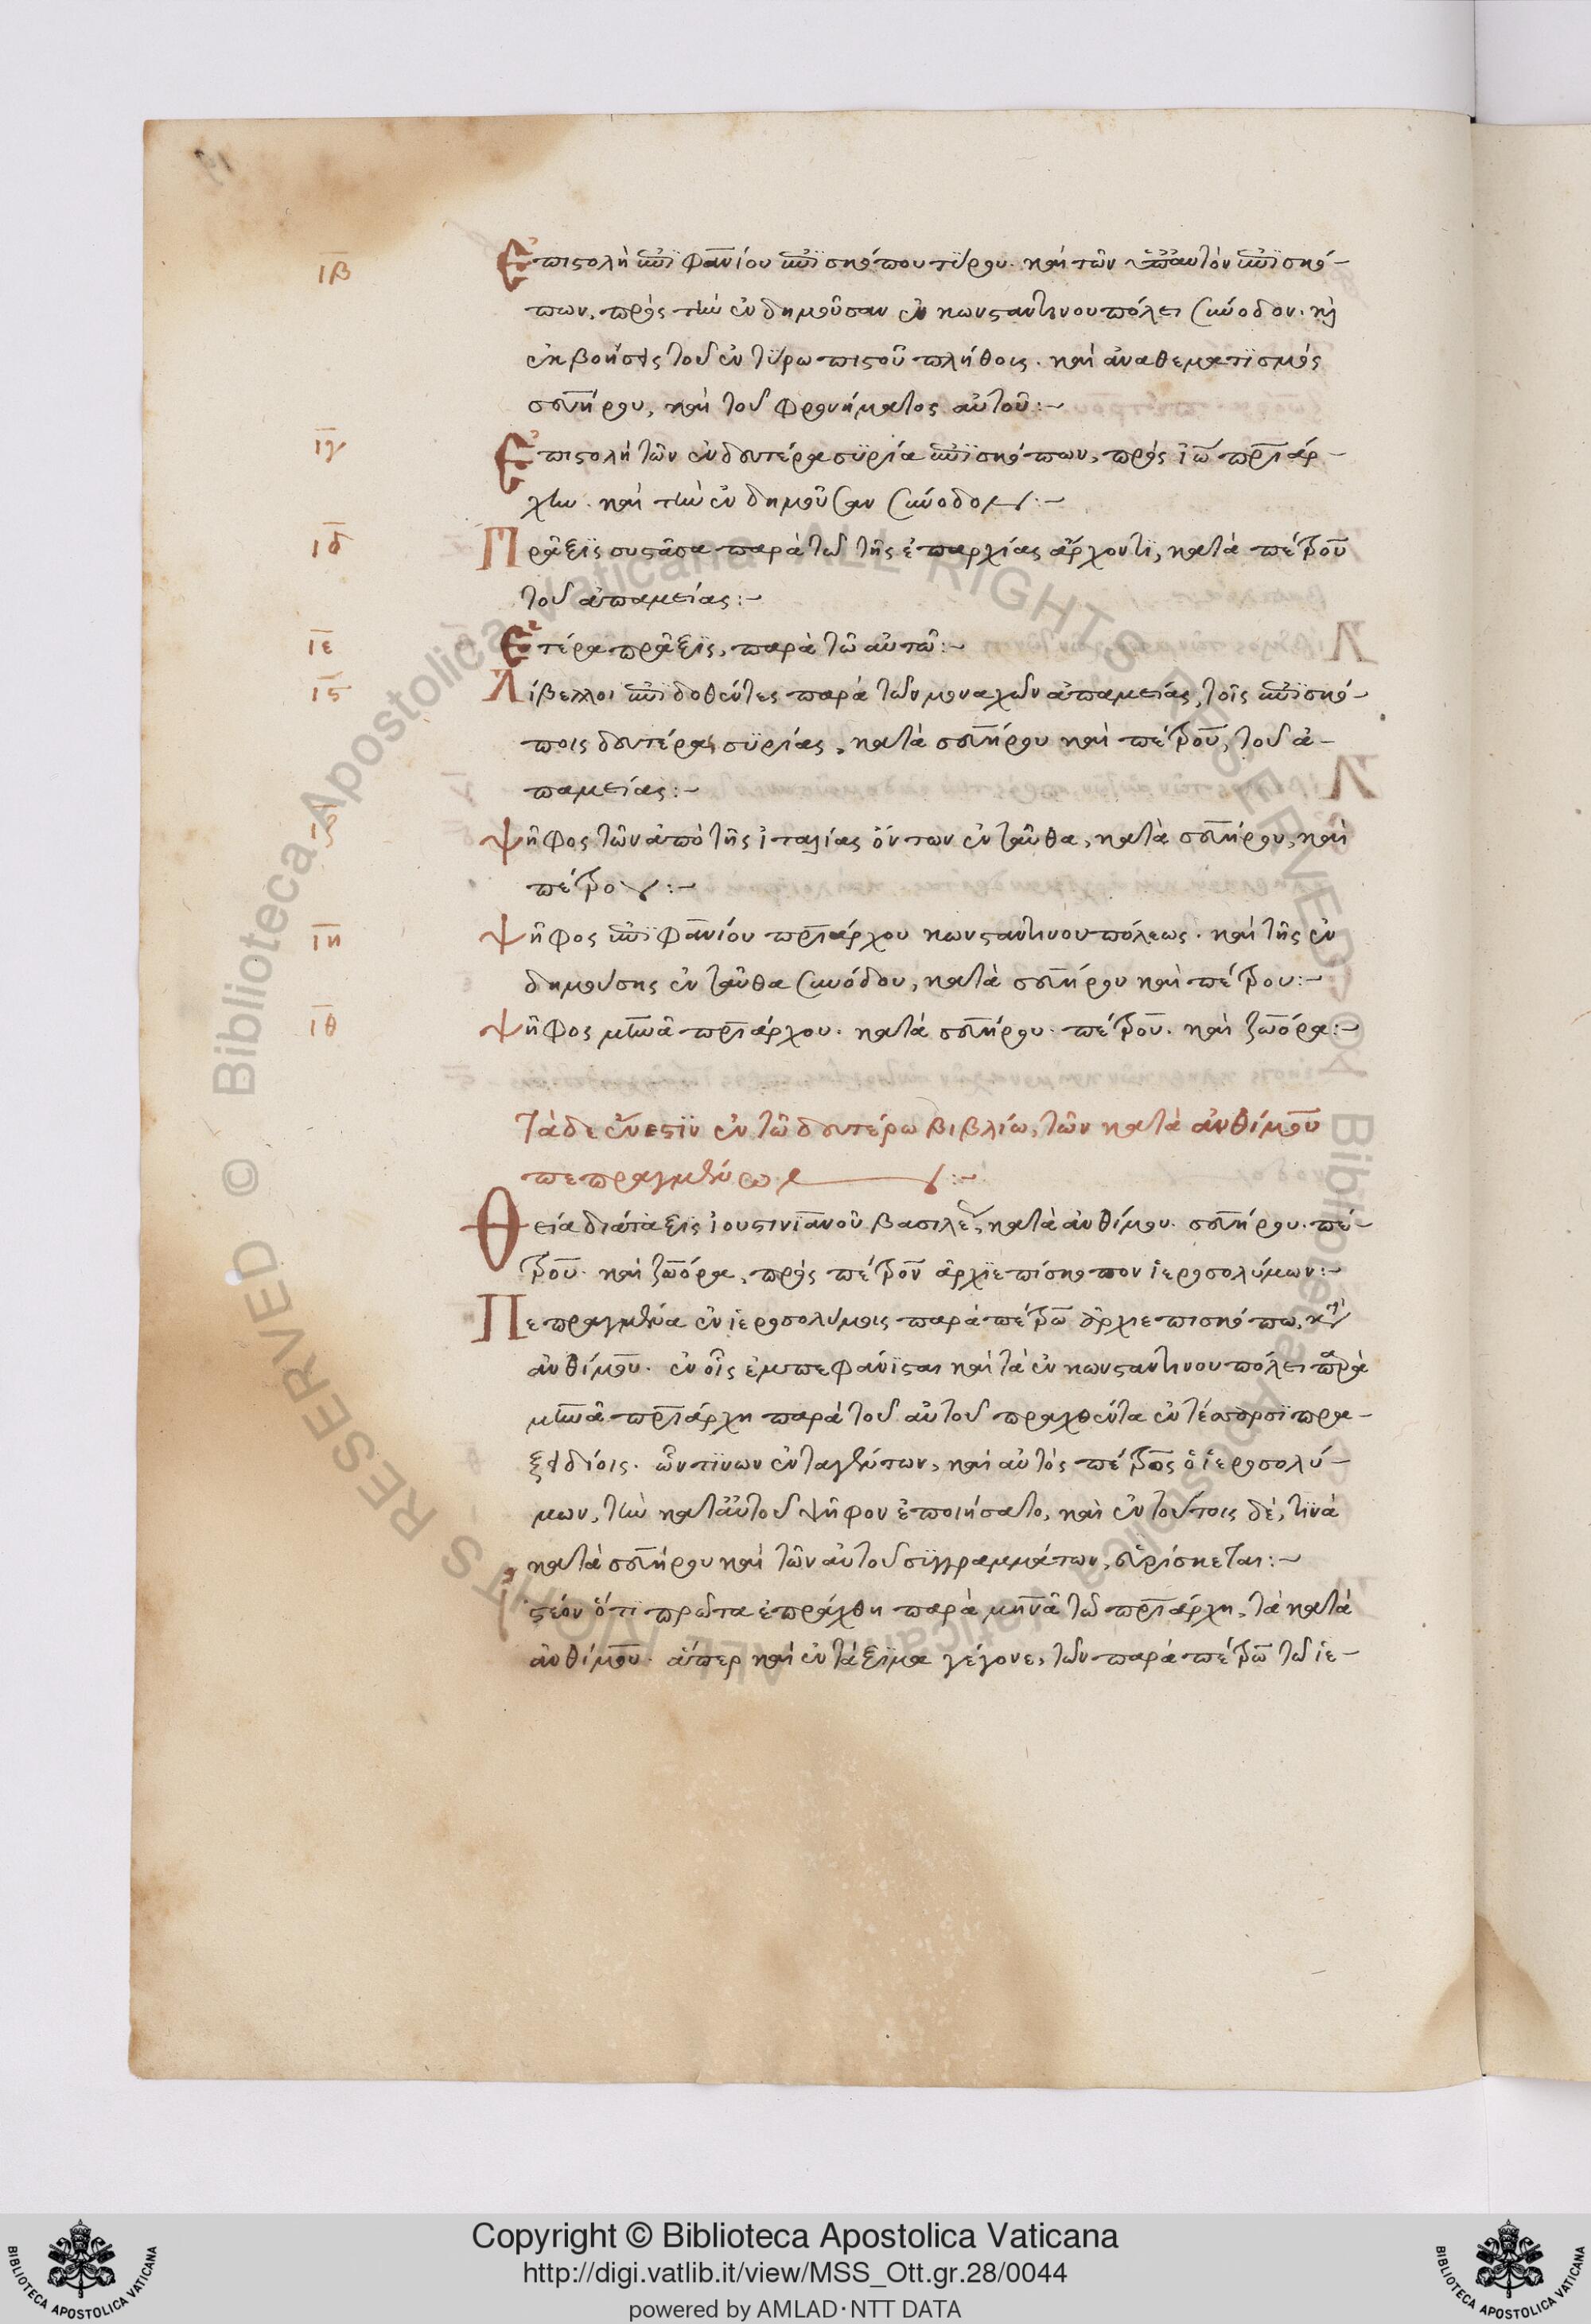 ιβ Ἐπιστολὴ ἐπιφανίου ἐπισκόπου τύρου. καὶ τῶν ὑπ' αὐτὸν ἐπισκό-
πων, πρὸς τὴν ἐνδημοῦσαν ἐν κωνσταντινουπόλει σύνοδον. κὶ
ἐκβοήσεις τοῦ ἐν τύρω πιστοῦ πλήθους. καὶ ἀναθεματϊσμὸς
σευήρου, καὶ τοῦ φρονήματος αὐτοῦ:~
ιγ Ἐπιστολὴ τῶν ἐν δευτέρα συρία ἐπισκόπων, πρὸς ἰω πριάρ-
χην. καὶ τὴν ἐνδημοῦσαν σύνοδον:~
ιδ Πρᾶξϊς συστᾶσα παρὰ τῶ τῆς ἐπαρχίας ἄρχοντϊ, κατὰ πέτρου
τοῦ ἀπαμείας:~
ιε Ἑτέρα πρᾶξϊς, παρὰ τῶ αὐτῶ:~
ιϛ Λίβελλοι ἐπιδοθέντες παρὰ τῶν μοναχῶν ἀπαμείας, τοῖς ἐπισκό-
ποις δευτέρας συρίας, κατὰ σευήρου καὶ πέτρου, τοῦ ἀ-
παμείας:~
ιζ Ψῆφος τῶν ἀπὸ τῆς ἰταλίας ὄντων ἐνταῦθα, κατὰ σευήρου, καὶ
πέτρου:~
ιη Ψῆφος ἐπιφανίου πριάρχου κωνσταντινουπόλεως. καὶ τῆς ἐν
δημούσης ἐνταῦθα συνόδου, κατὰ σευήρου καὶ πέτρου:~
ιθ Ψῆφος μηνᾶ πριάρχου. κατὰ σευήρου. πέτρου. καὶ ζωόρα:~
Τάδε ἔνεστϊν ἐν τῶ δευτέρω βιβλίω, τῶν κατὰ ἀνθίμου
πεπραγμένων:~
Θεία διάταξϊς ἰουστινϊανοῦ βασιλέως, κατὰ ἀνθίμου. σευήρου. πέ-
τρου. καὶ ζωόρα, πρὸς πέτρον ἀρχϊεπίσκοπον ἱεροσολύμων:~
Πεπραγμένα ἐν ἱεροσολύμοις παρὰ πέτρω ἀρχιεπισκόπω, κατὰ
ἀνθίμου. ἐν οἷς ἐμπεφάνϊσται καὶ τὰ ἐν κωνσταντινουπόλει παρὰ
μηνᾶ πριάρχη παρὰ τοῦ αὐτοῦ πραχθέντα ἐν τέσσαρσϊ πρα-
ξειδίοις. ὧντϊνων ἐνταγέντων, καὶ αὐτὸς πέτρος ὁ ἱεροσολύ-
μων, τὴν κατ' αὐτοῦ ψῆφον ἐποιήσατο, καὶ ἐν τούτοις δὲ, τϊνὰ
κατὰ σευήρου καὶ τῶν αὐτοῦ συγγραμμάτων, εὑρίσκεται:~
Ἰστέον ὅτϊ πρῶτα ἐπράχθη παρὰ μηνᾶ τῶ πριάρχη, τὰ κατὰ
ἀνθίμου. ἅπερ καὶ ἐντάξϊμα γέγονε, τῶν παρὰ πέτρω τῶ ἱε-
Copyright © Biblioteca Apostolica Vaticana
http://digi.vatlib.it/view/MSS_Ott.gr.28/0044
powered by AMLAD·NTT DATA